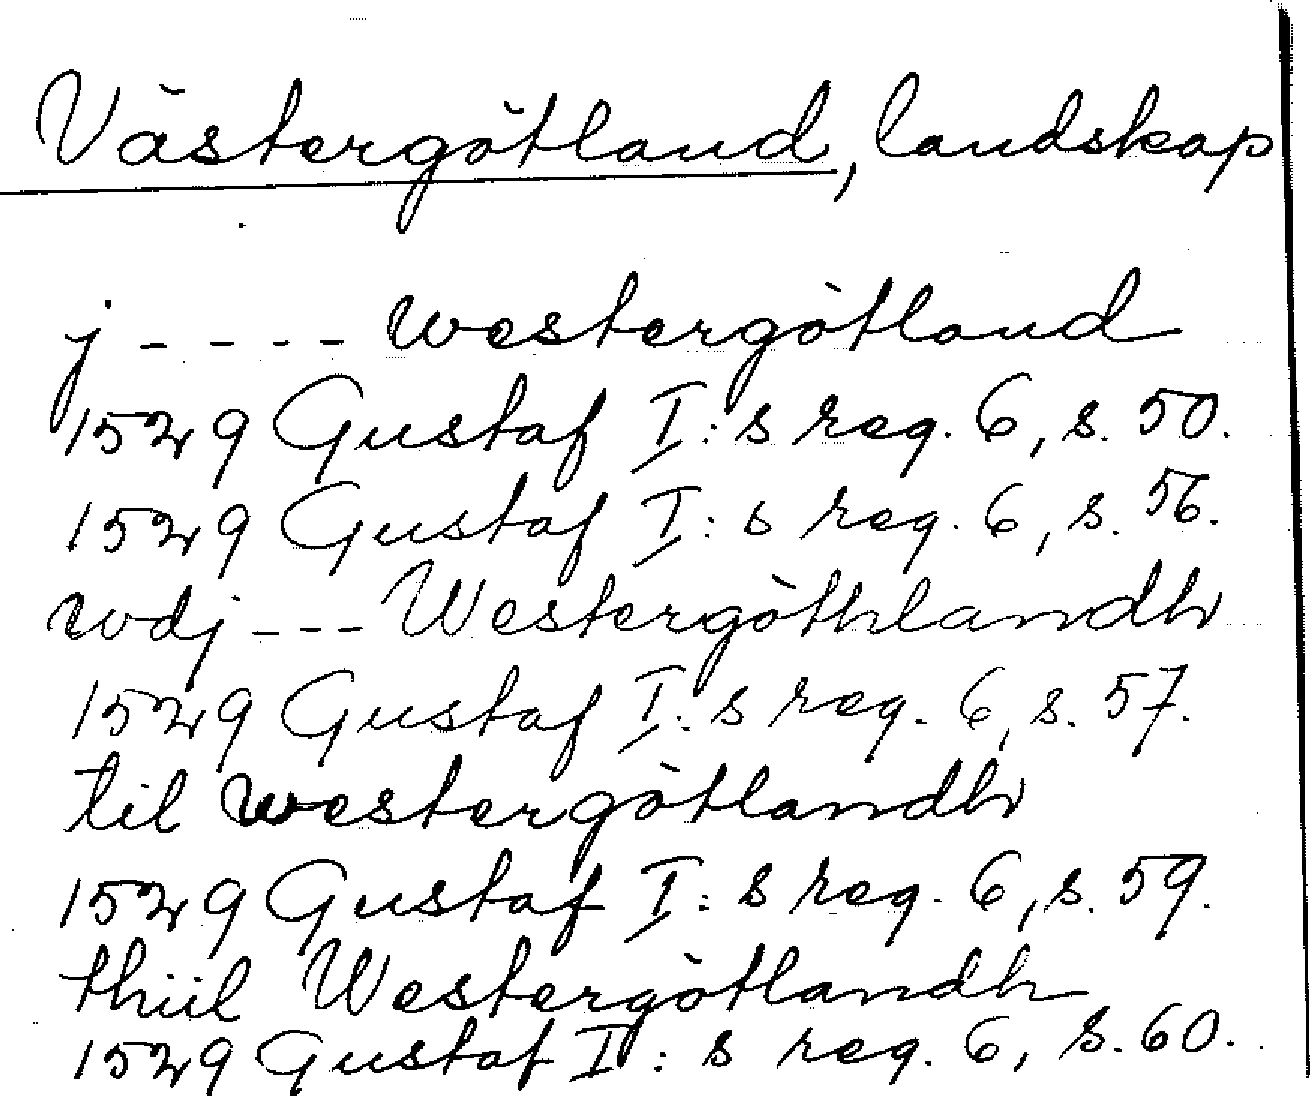 Västergötland, landskap
j ----- westergötland
1529 Gustaf I:s reg. 6, s. 50.
1529 Gustaf I:s reg. 6, s. 56.
wdj --- Westergöthlandh
1529 Gustaf I:s reg. 6, s. 57.
til westergötlandh
1529 Gustaf I:s reg. 6, s. 59.
thiil Westergötlandh
1529 Gustaf I:s reg. 6, s. 60.